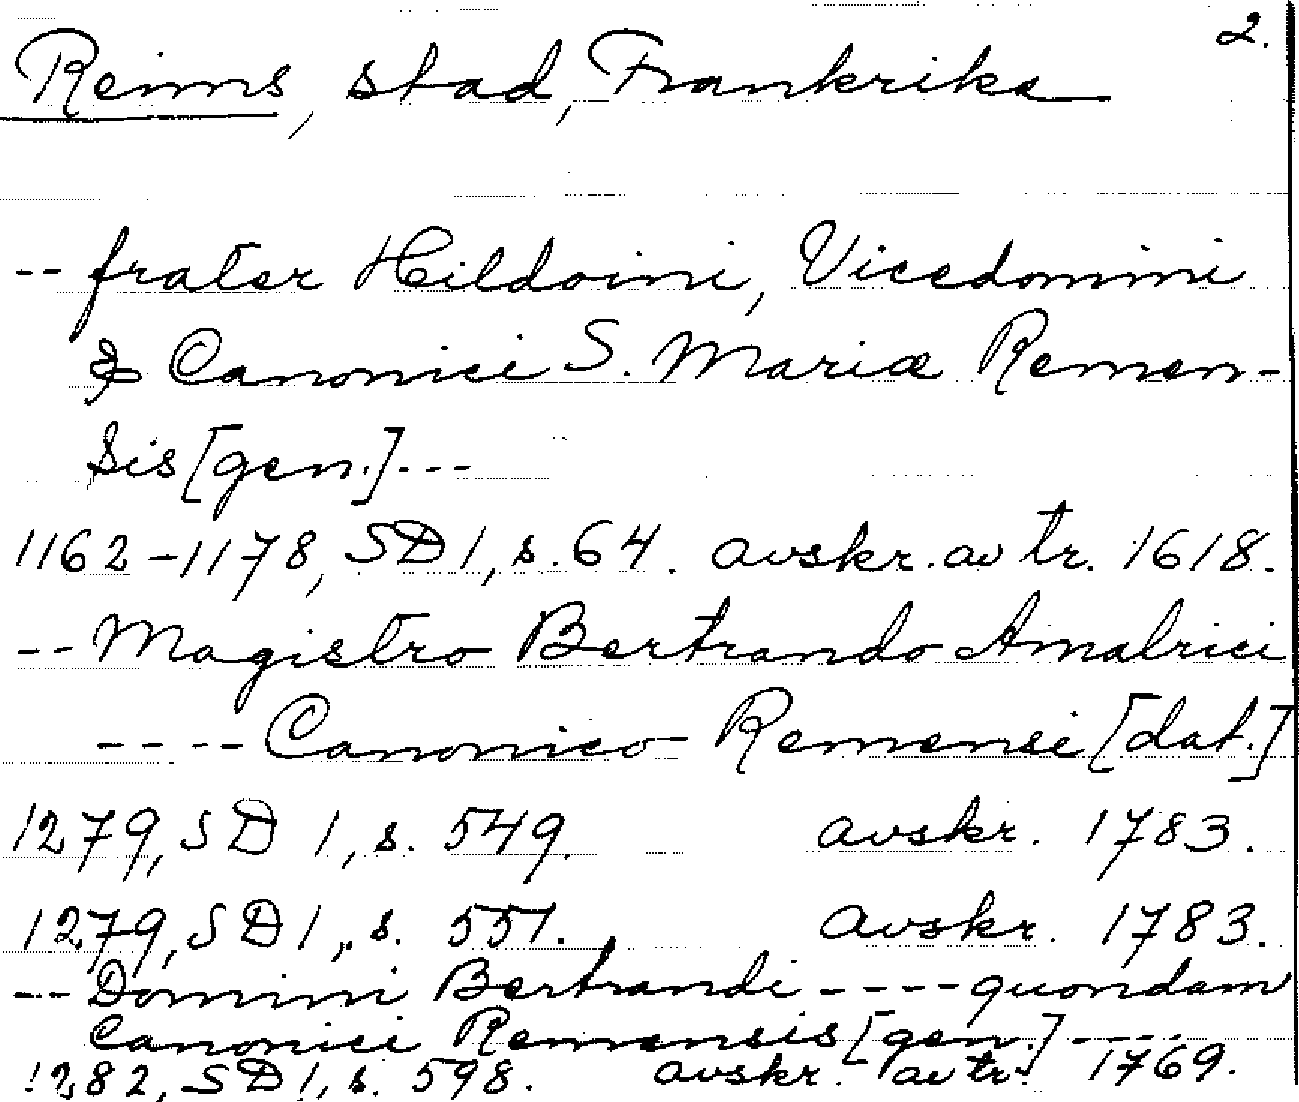 2.
Reims, stad, Frankrike
-- frater Hildoini, Vicedomini
& Canonici S. Mariæ Remen-
sis [gen.] ---
1162-1178, SD 1, s. 64. avskr. av tr. 1618.
-- Magistro Bertrando Amalrici
---- Canonico Remensi [dat.]
1279, SD 1, s. 549. avskr. 1783.
1279, SD 1, s. 551. avskr. 1783.
-- Domini Bertrandi ---- quondam
Canonici Remensis [gen.] ----
1282, SD 1, s. 598. avskr. av tr. 1769.